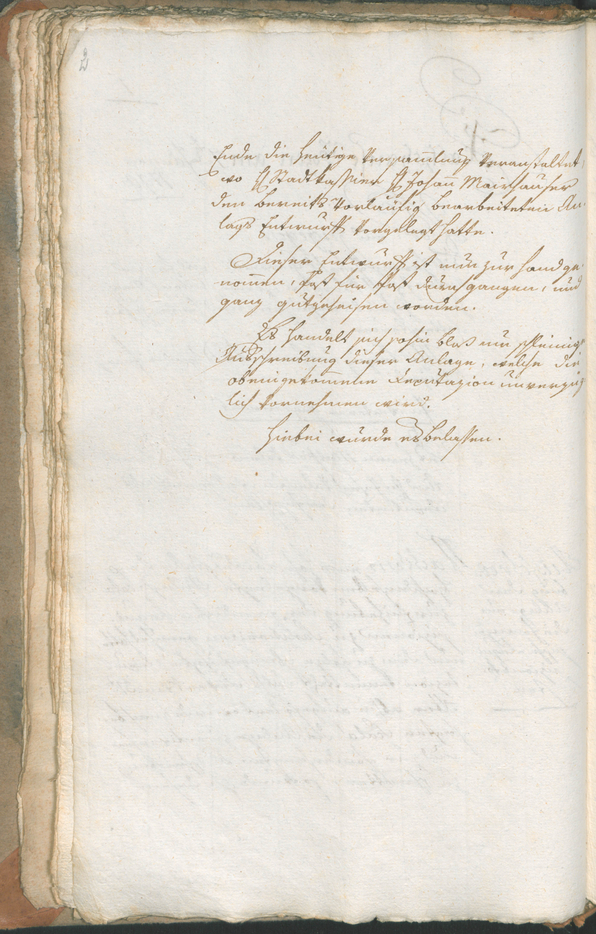 2
Ende die heutige Versammlung veranstaltet,
wo H Stadtkassier H Johan Mairhauser
den bereits vorläufig bearbeiteten An-
lags Entwurf vorgelegt hatte.
Dieser Entwurf ist nun zur Hand ge-
nommen, Post für Post durchgangen, und
ganz gutgeheisen worden.
Es handelt sich sohin blos um schleinige
Ausschreibung dieser Anlage, welche die
obeingekommene Deputazion unverzüg-
lich vornehmen wird.
Hiebei wurde es belassen.